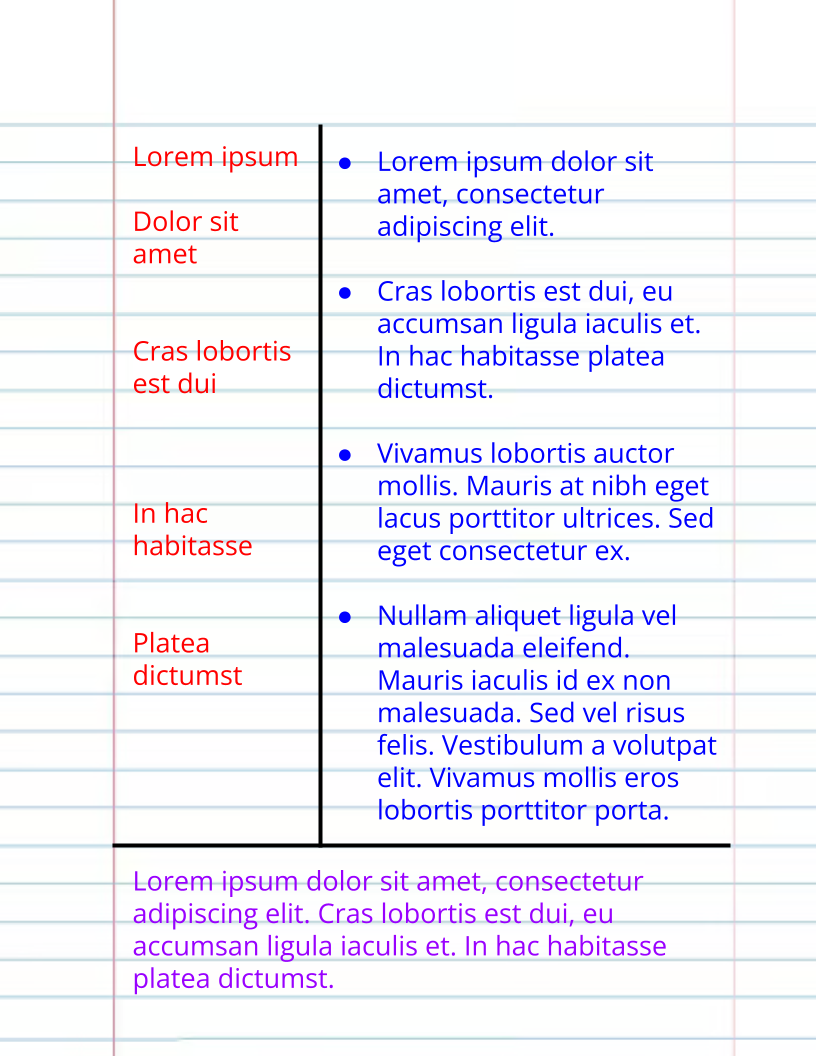 Lorem ipsum
Dolor sit
amet
Cras lobortis
est dui
In hac
habitasse
Platea
dictumst
● Lorem ipsum dolor sit
amet, consectetur
adipiscing elit.
● Cras lobortis est dui, eu
accumsan ligula iaculis et.
In hac habitasse platea
dictumst.
● Vivamus lobortis auctor
mollis. Mauris at nibh eget
lacus porttitor ultrices. Sed
eget consectetur ex.
● Nullam aliquet ligula vel
malesuada eleifend.
Mauris iaculis id ex non
malesuada. Sed vel risus
felis. Vestibulum a volutpat
elit. Vivamus mollis eros
lobortis porttitor porta.
Lorem ipsum dolor sit amet, consectetur
adipiscing elit. Cras lobortis est dui, eu
accumsan ligula iaculis et. In hac habitasse
platea dictumst.